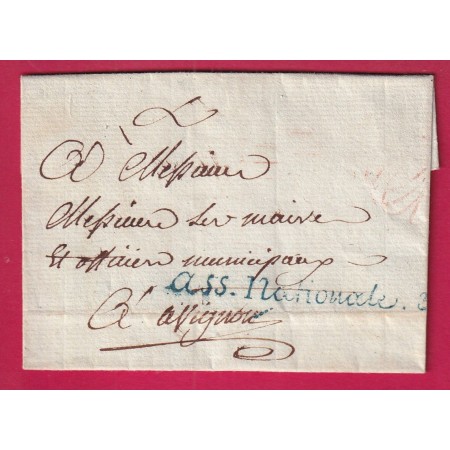 A Messieurs
Messieurs les maire
Et officiers municipaux
ASS. Nationale.
A avignon